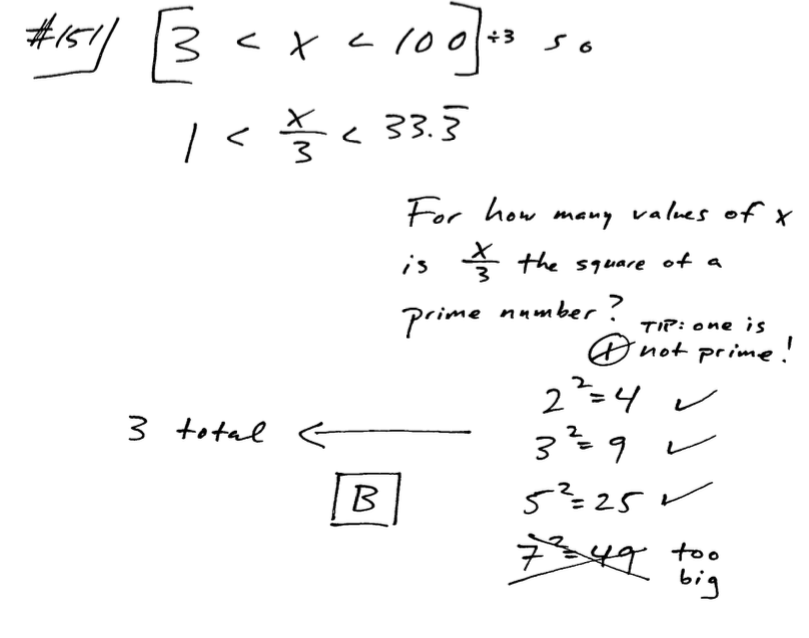 #151 [3 < x < 100] ÷3 so
1 < x/3 < 33.3̅
For how many values of x
is x/3 the square of a
prime number?
TIP: one is
not prime!
2² = 4 ✓
3² = 9 ✓
3 total ←
5² = 25 ✓
B
7² = 49 too
big